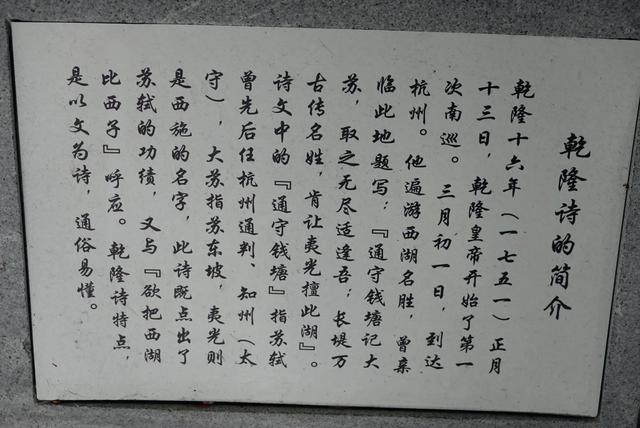 乾隆诗的简介
乾隆十六年（一七五一）正月
十三日，乾隆皇帝开始了第一
次南巡。三月初一日，到达
杭州。他遍游西湖名胜，曾亲
临此地题写：『通守钱塘记大
苏，取之无尽适逢吾；长堤万
古传名姓，肯让夷光擅此湖』。
诗文中的『通守钱塘』指苏轼
曾先后任杭州通判、知州（太
守），大苏指苏东坡，夷光则
是西施的名字，此诗既点出了
苏轼的功绩，又与『欲把西湖
比西子』呼应。乾隆诗特点，
是以文为诗，通俗易懂。